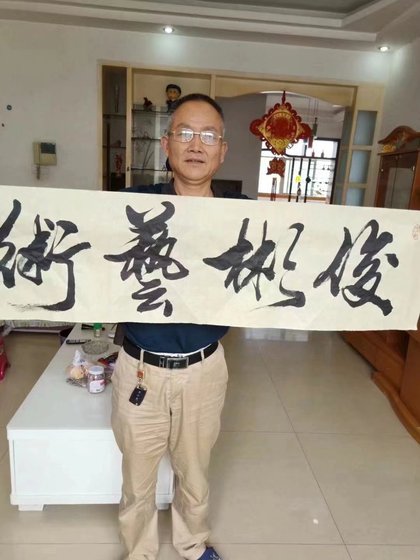 俊彬藝術